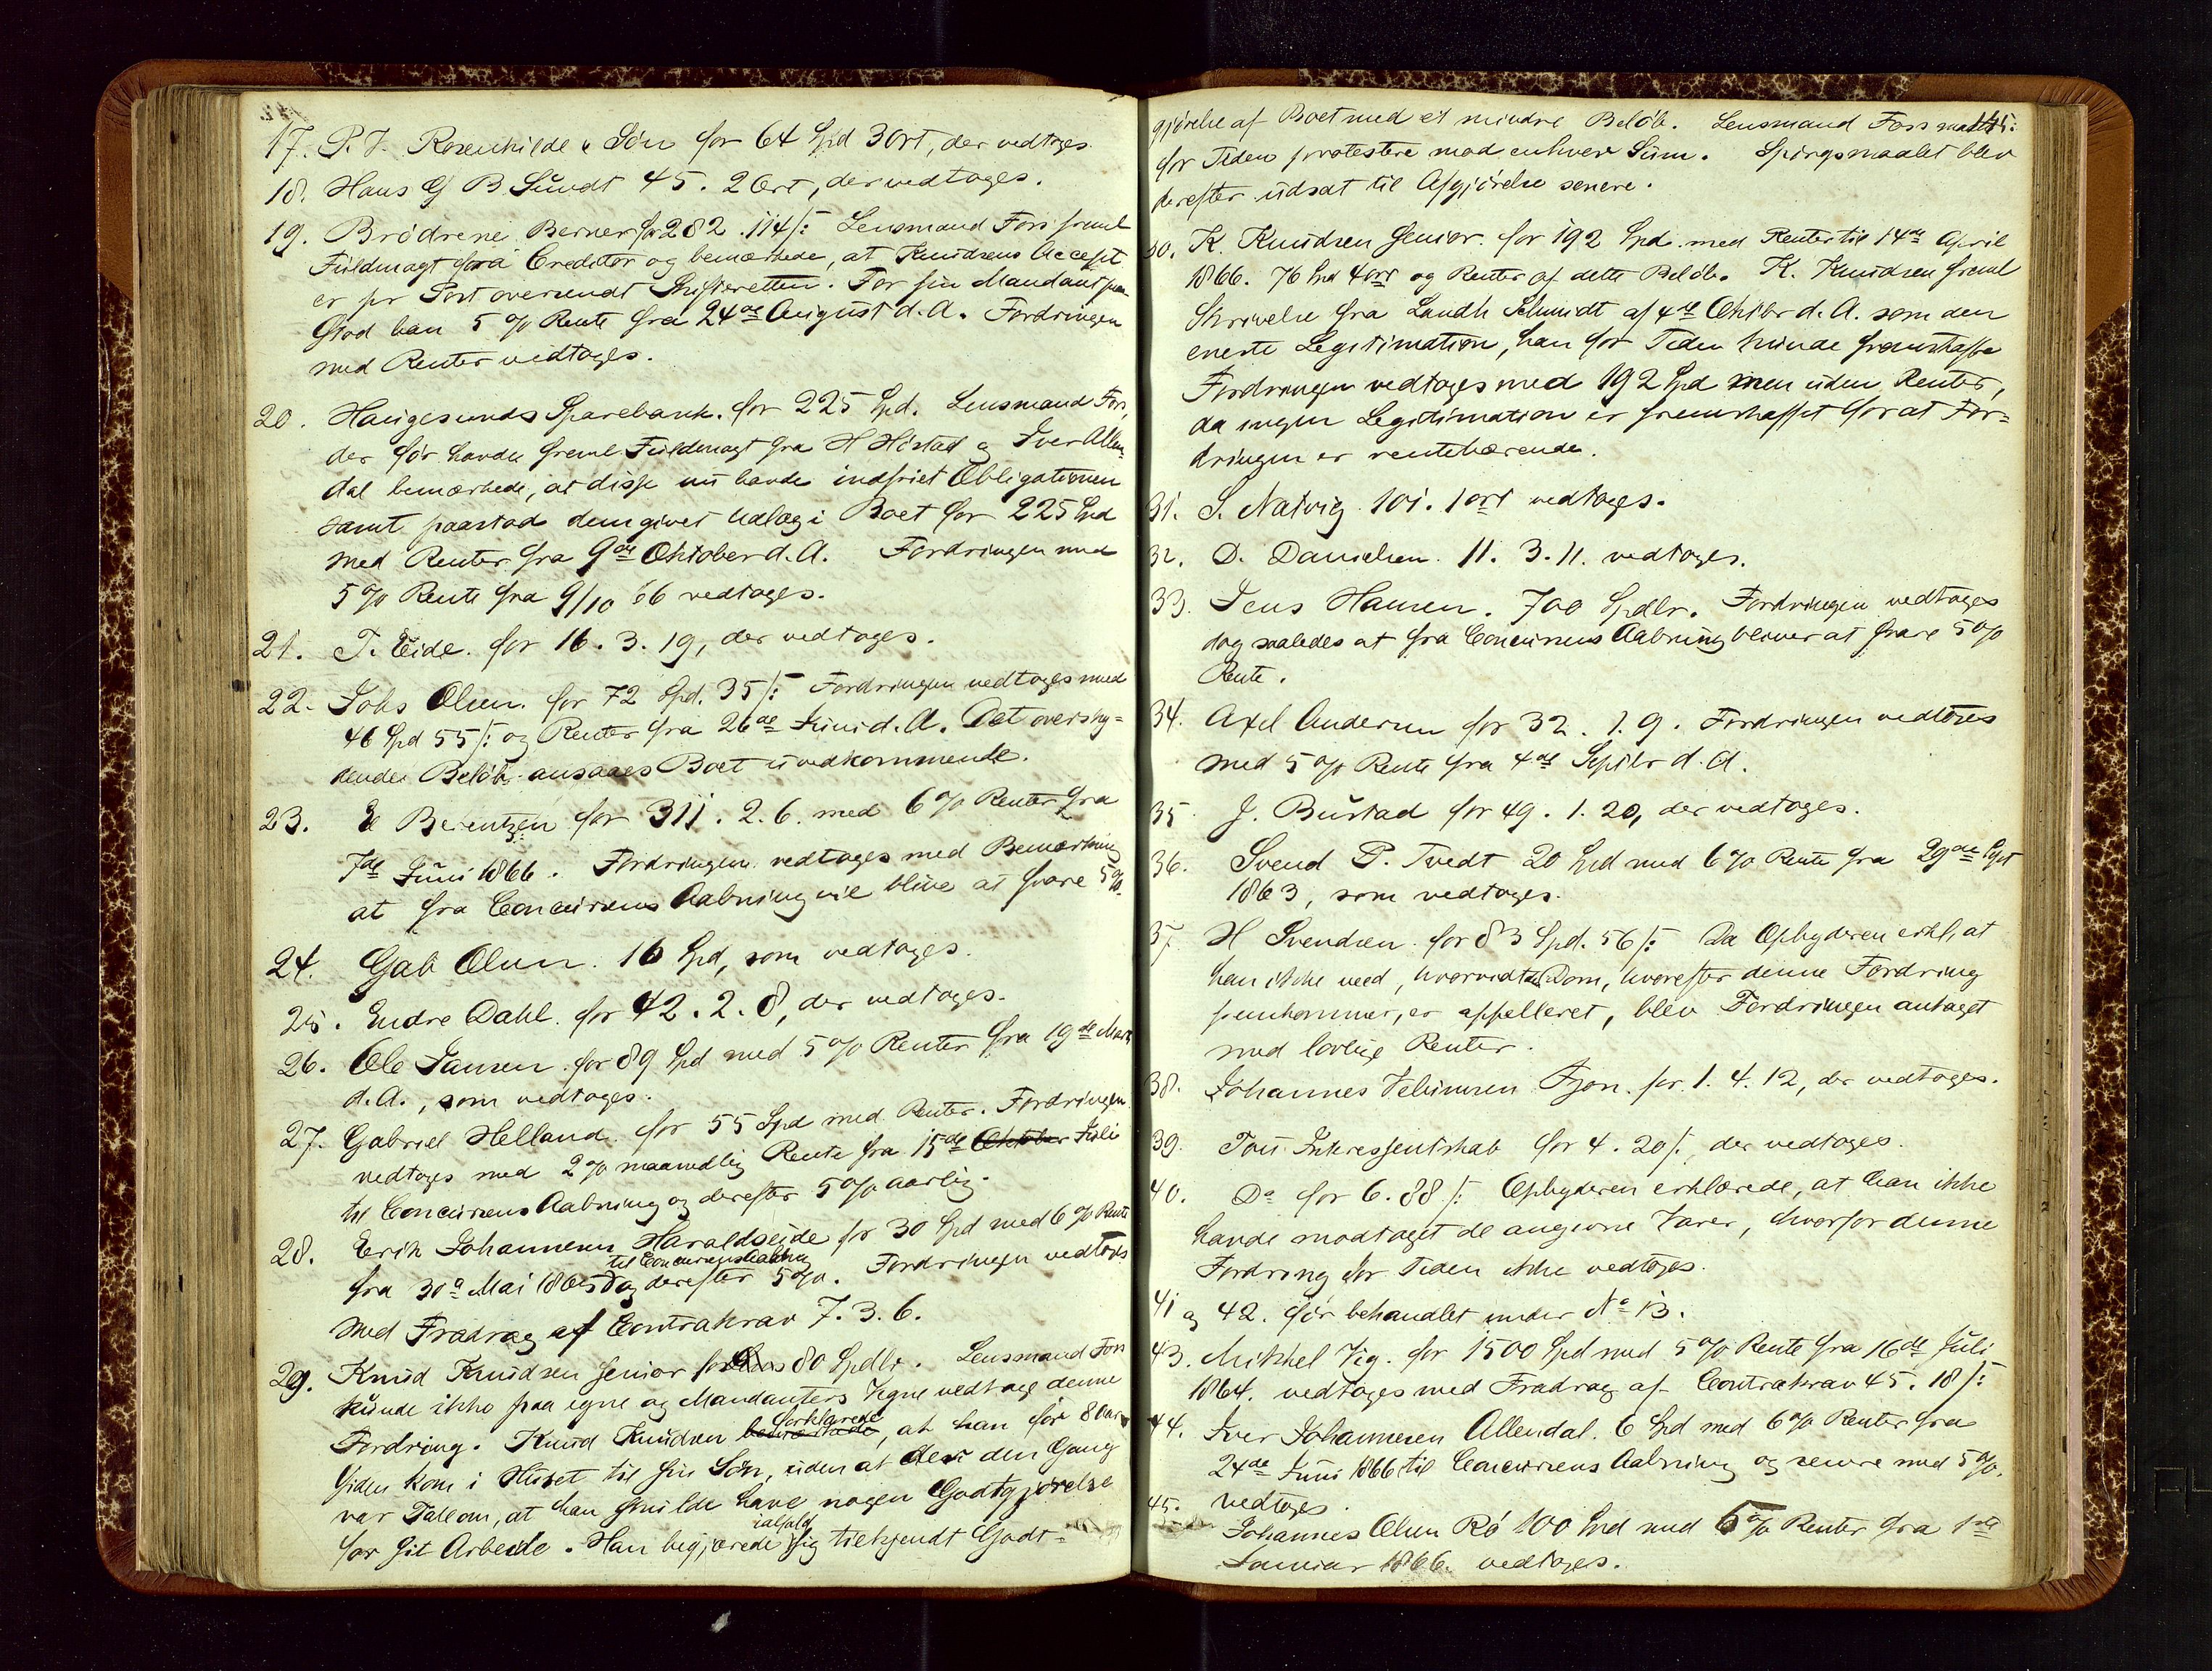 17. P. J. Rosenkilde & Søn for 64 Spd 3 ort, der vedtages.
18. Hans G B Sundt 45. 2 Ort, der vedtages.
19. Brødrene Berner for 282. 114/: Lensmand Foss freml
Fuldmagt fra Creditor og bemærkede, at Knudsens Accept
er pr Post oversendt Skifteretten. For sin Mandant paa-
stod han 5 % Rente fra 24de August d. A. Fordringen
med Renter vedtages.
20. Haugesunds Sparebank. for 225 Spd. Lensmand Foss,
der før havde freml. Fuldmagt fra H Høstad og Iver Allen-
dal bemærkede, at disse nu havde indfriet Obligationen
samt paastod dem givet Udlæg i Boet for 225 Spd
med Renter fra 9de Oktober d. A. Fordringen med
5 % Rente fra 9/10 66 vedtages.
21. T. Eide. for 16. 3. 19, der vedtages.
22. Johs Olsen. for 72 Spd. 35/: Fordringen vedtages med
46 Spd 55/: og Renter fra 26de Juni d. A. Det oversky-
dende Beløb ansaaes Boet uvedkommende.
23. E Berentzen for 311. 2. 6. med 6 % Renter fra
7de Juni 1866. Fordringen vedtages med Bemærkning
at fra Concursens Aabning vil blive at svare 5 %.
24. Gab Olsen. 16 Spd, som vedtages.
25. Endre Dahl. for 42. 2. 8, der vedtages.
26. Ole Jansen. for 89 Spd med 5 % Renter fra 19de Marts
d. A., som vedtages.
27. Gabriel Helland. for 55 Spd med Renter. Fordringen
vedtages med 2 % maanedlig Rente fra 15de Oktober Juli
til Concursens Aabning og derefter 5 % aarlig.
28. Erik Johannesen Haraldseide for 30 Spd med 6 % Rente
til Concursens Aabning
fra 30te Mai 1865 og derefter 5 %. Fordringen vedtoges
med Fradrag af Contrakrav 7. 3. 6.
29. Knud Knudsen senior for 80 Spdlr. Lensmand Foss
kunde ikke paa egne og Mandanters Vegne vedtage denne
forklarede
Fordring. Knud Knudsen bemærkede, at han for 8 Aar
siden kom i Huset til sin Søn, uden at der den Gang
var Tale om, at han skulde have nogen Godtgjørelse
ialfald
for sit Arbeide. Han begjærede sig tilkjendt Godt-
145.
gjørelse af Boet med et mindre Beløb. Lensmand Foss maatte
for Tiden protestere mod enhver Sum. Spørgsmaalet blev
derefter udsat til Afgjørelse senere.
30. K. Knudsen senior. for 192 Spd. med Renter til 14de April
1866. 76 Spd 4 ort og Renter af dette Beløb. K. Knudsen freml
Skrivelse fra Landh Schmidt af 4de Oktbr d. A. som den
eneste Legitimation, han for Tiden kunde fremskaffe
Fordringen vedtages med 192 Spd men uden Renter,
da ingen Legitimation er fremskaffet for at For-
dringen er rentebærende.
31. S. Natvig 101. 1 ort vedtages.
32. D. Danielsen. 11. 3. 11. vedtages.
33. Jens Hansen. 700 Spdlr. Fordringen vedtages
dog saaledes at fra Concursens Aabning bliver at svare 5 %
Rente.
34. Axel Andersen for 32. 1. 9. Fordringen vedtoges
med 5 % Rente fra 4de Septbr d. A.
35 J. Bustad for 49. 1. 20, der vedtages.
36. Svend P. Tvedt 20 Spd med 6 % Rente fra 29de Sept
1863, som vedtages.
37 H Svendsen. for 83 Spd. 56/: Da Opbyderen erkl, at
han ikke veed, hvorvidt Dom, hvorefter denne Fordring
fremkommer, er appelleret, blev Fordringen antaget
med lovlige Renter.
38. Johannes Vehimsen Fjon. for 1. 4. 12, der vedtages.
39. Tou Interessentskab for 4. 20/:, der vedtages.
40. Do for 6. 88/: Opbyderen erklærede, at han ikke
havde modtaget de angivne Varer, hvorfor denne
Fordring for Tiden ikke vedtages.
41 og 42. før behandlet under No 13.
43. Mikkel Vig. for 1500 Spd med 5 % Rente fra 16de Juli
1864. vedtages med Fradrag af Contrakrav 45. 18/:
44. Iver Johannesen Allendal. 6 Spd med 6 % Renter fra
24de Juni 1866 til Concursens Aabning og senere med 5 %.
vedtages.
45. Johannes Olsen Rø 100 Spd med 5 % Renter fra 1ste
Januar 1866. vedtages.